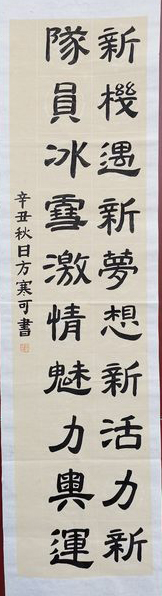 新機遇新夢想新活力新
隊員冰雪激情魅力奧運
辛丑秋日方寒可書